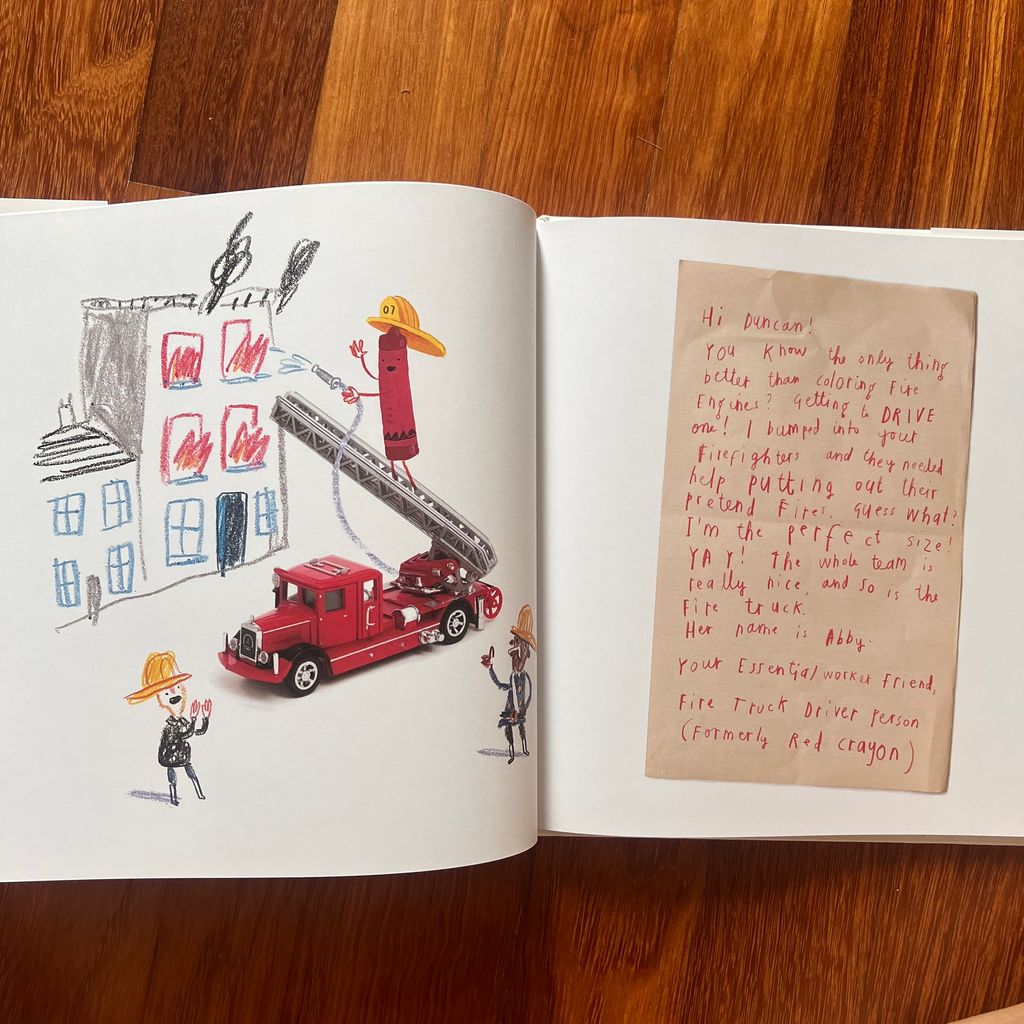 07
Hi Duncan!
You know the only thing
better than coloring Fire
Engines? Getting to DRIVE
one! I bumped into your
Firefighters and they needed
help putting out their
pretend Fires. Guess what?
I'm the perfect size!
YAY! The whole team is
really nice, and so is the
Fire truck.
Her name is Abby.
Your Essential worker Friend,
Fire Truck Driver Person
(Formerly Red Crayon)